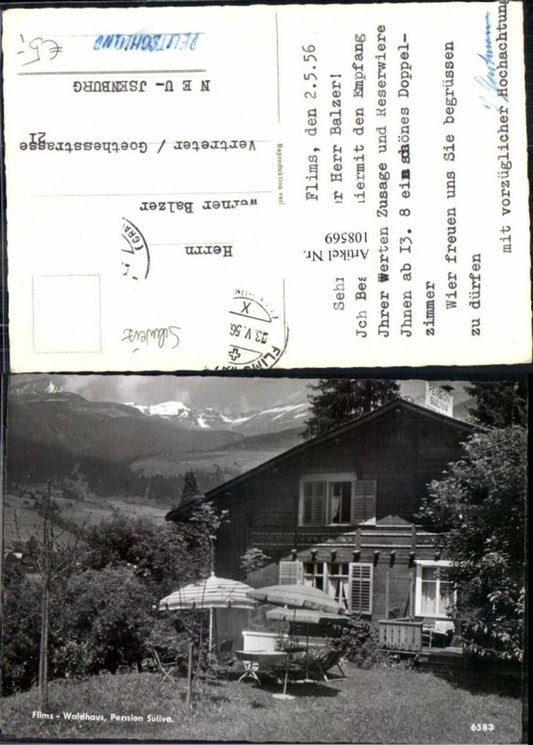 Flims, den 2.5.56
Sehr r Herr Balzer!
Jch Bes iermit den Empfang
Jhrer Werten Zusage und Reserwiere
Jhnen ab I3. 8 ein schönes Doppel-
zimmer
Wier freuen uns Sie begrüssen
zu dürfen
mit vorzüglicher Hochachtung
Artikel Nr.
108569
Schweiz
FLIMS
23.V.56
X
Herrn
Werner Balzer
Vertreter / Goethesstrasse
21
N E U - JSENBURG
DEUTSCHLAND
€5,-
PENSION
SULIVA
Flims - Waldhaus, Pension Suliva.
6583